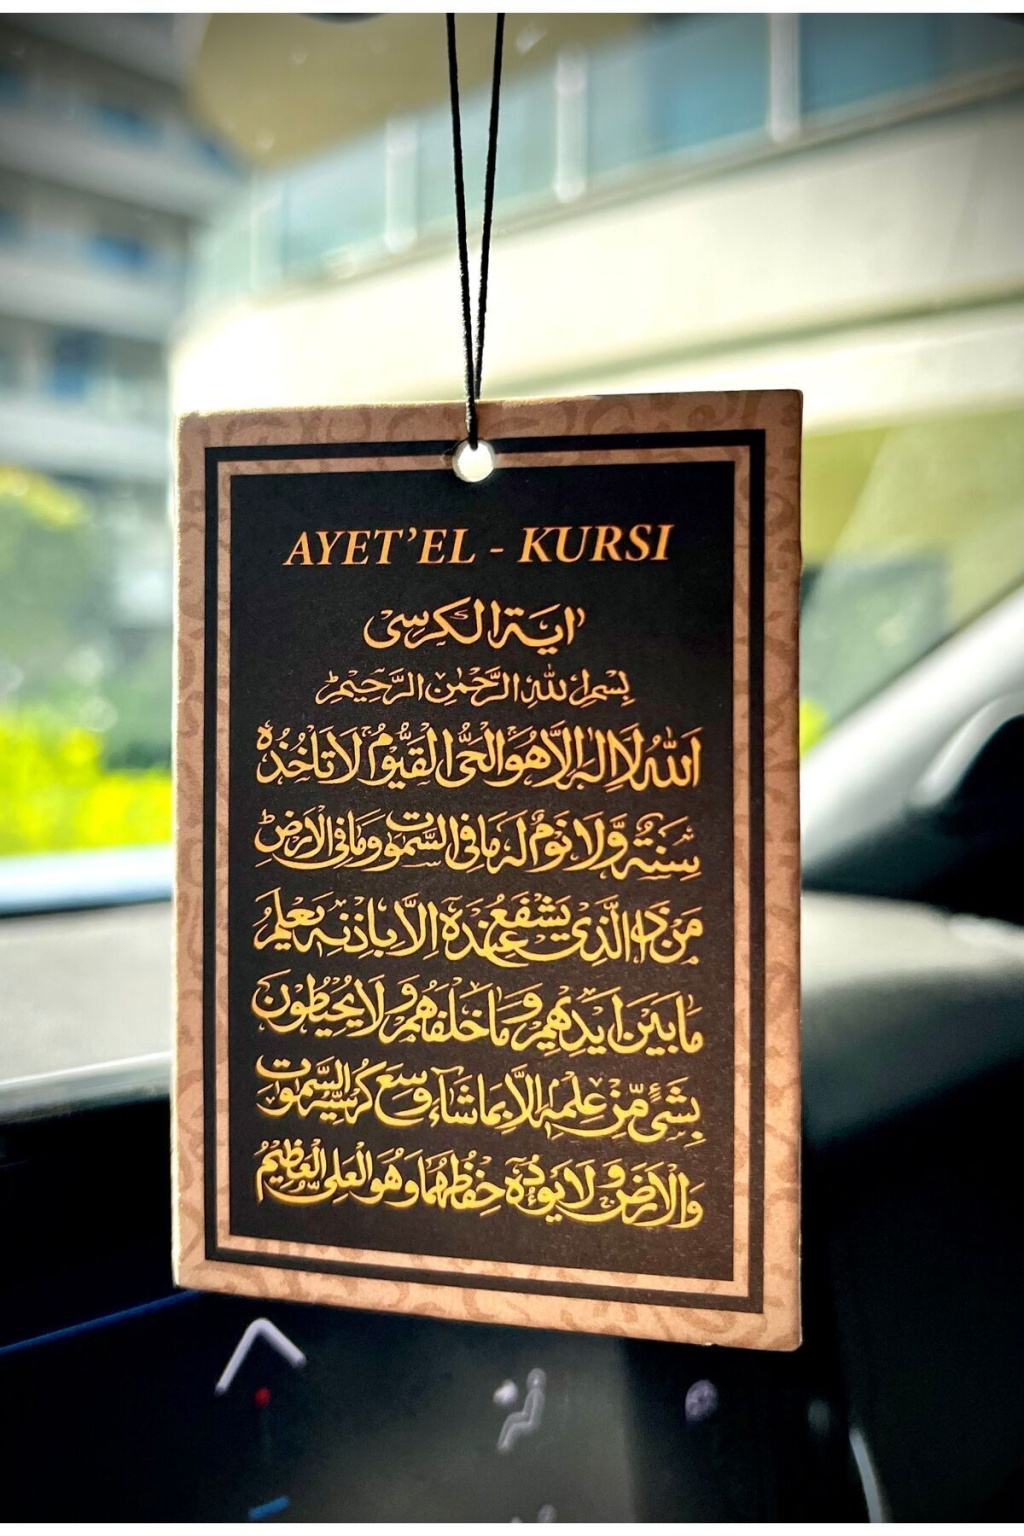 AYET'EL - KURSI
اية الكرسى
بسم الله الرحمن الرحيم
اَللهُ لَا اِلٰهَ اِلَّا هُوَ الْحَىُّ الْقَيُّوْمُ لَا تَاْخُذُهٗ
سِنَةٌ وَّلَا نَوْمٌ لَهٗ مَا فِى السَّمٰوٰتِ وَمَا فِى الْاَرْضِ
مَنْ ذَا الَّذِىْ يَشْفَعُ عِنْدَهٗ اِلَّا بِاِذْنِهٖ يَعْلَمُ
مَا بَيْنَ اَيْدِيْهِمْ وَمَا خَلْفَهُمْ وَلَا يُحِيْطُوْنَ
بِشَىْءٍ مِّنْ عِلْمِهٖ اِلَّا بِمَا شَآءَ وَسِعَ كُرْسِيُّهُ السَّمٰوٰتِ
وَالْاَرْضَ وَلَا يَؤُدُهٗ حِفْظُهُمَا وَهُوَ الْعَلِىُّ الْعَظِيْمُ